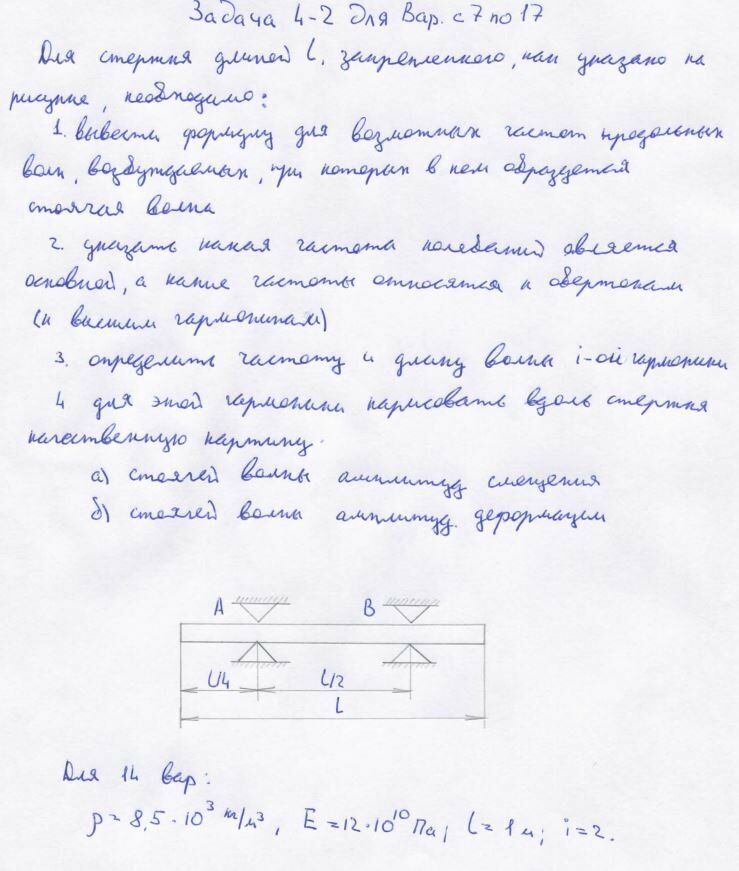 Задача 4-2 для Вар. с 7 по 17
Для стержня длиной l, закрепленного, как указано на
рисунке, необходимо:
1. вывести формулу для возможных частот продольных
волн, возбуждаемых, при которых в нем образуется
стоячая волна
2. указать какая частота колебаний является
основной, а какие частоты относятся к обертонам
(к высшим гармоникам)
3. определить частоту и длину волны i-ой гармоники
4 для этой гармоники нарисовать вдоль стержня
качественную картину.
а) стоячей волны амплитуд смещения
б) стоячей волны амплитуд деформации
A B
l/4 l/2
L
Для 14 вар:
ρ = 8,5·10³ кг/м³, E = 12·10¹⁰ Па, l = 1 м; i = 2.